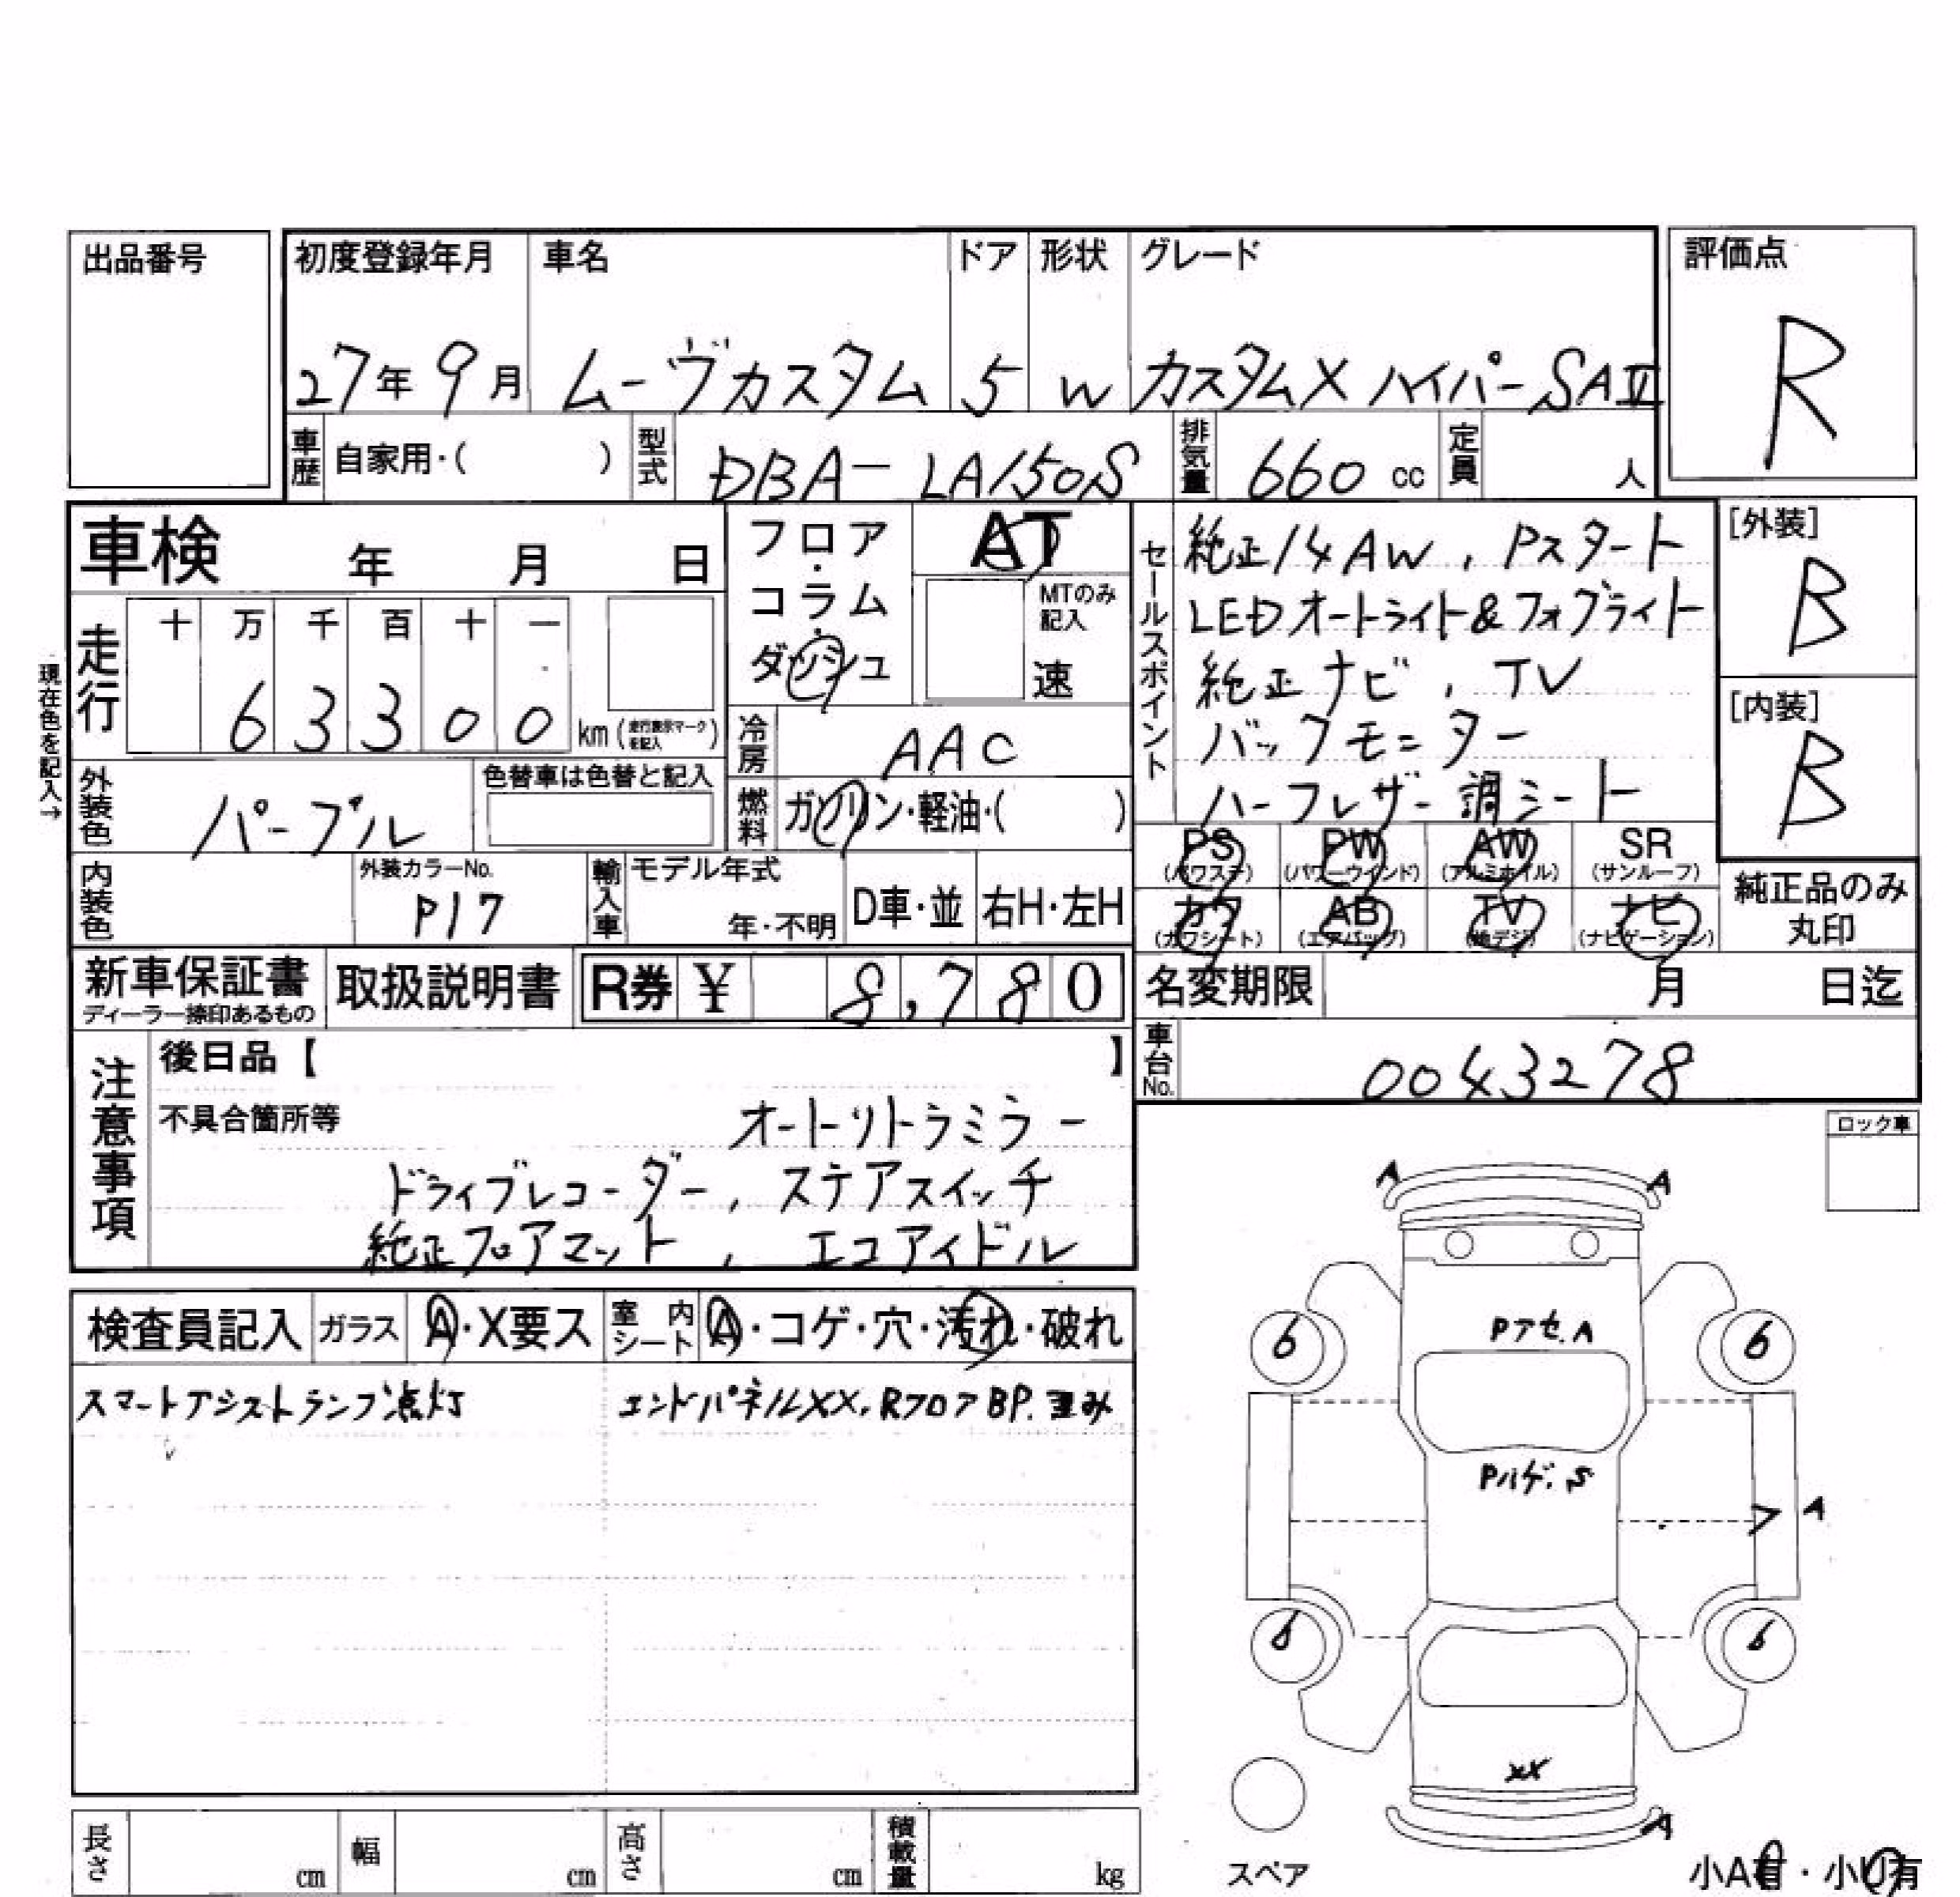 出品番号
初度登録年月 車名 ドア 形状 グレード 評価点
27年9月 ムーヴカスタム 5 W カスタムX ハイパーSAⅡ R
車歴 自家用・( ) 型式 DBA-LA150S 排気量 660cc 定員 人
車検 年 月 日
フロア・コラム・ダッシュ AT
MTのみ記入 速
セールスポイント
純正14AW, Pスタート
LEDオートライト&フォグライト
純正ナビ, TV
バックモニター
ハーフレザー調シート
[外装] B
[内装] B
現在色を記入→
走行 十 万 千 百 十 一
6 3 3 0 0 km (走行表示マークを記入)
冷房 AAC
外装色 パープル 色替車は色替と記入
燃料 ガソリン・軽油・( )
PS (パワステ) PW (パワーウインド) AW (アルミホイル) SR (サンルーフ)
カワ (カワシート) AB (エアバッグ) TV (地デジ) ナビ (ナビゲーション)
純正品のみ丸印
内装色 外装カラーNo. P17 輸入車 モデル年式 年・不明 D車・並 右H・左H
新車保証書 ディーラー捺印あるもの 取扱説明書 R券 ¥ 8,780
名変期限 月 日迄
車台No. 0043278
注意事項 後日品【 】
不具合箇所等 オートリトラミラー
ドライブレコーダー, ステアスイッチ
純正フロアマット, エコアイドル
ロック車
検査員記入 ガラス A・X要ス 室内シート A・コゲ・穴・汚れ・破れ
スマートアシストランプ点灯 エンドパネルXX, RフロアBP.歪み
A A
Pアセ.A
6 6
Pハゲ.S
A
6 6
XX
A
スペア
小A有・小U有
長さ cm 幅 cm 高さ cm 積載量 kg